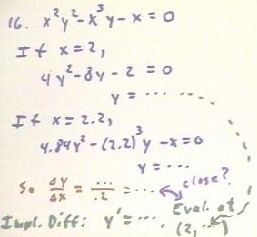 16. x²y² - x³y - x = 0
If x = 2,
4y² - 8y - 2 = 0
y = ....
If x = 2.2,
4.84y² - (2.2)³y - x = 0
y = ....
So Δy/Δx = .../.2 = .... close?
Impl. Diff: y' = .... Eval. at (2, ...)